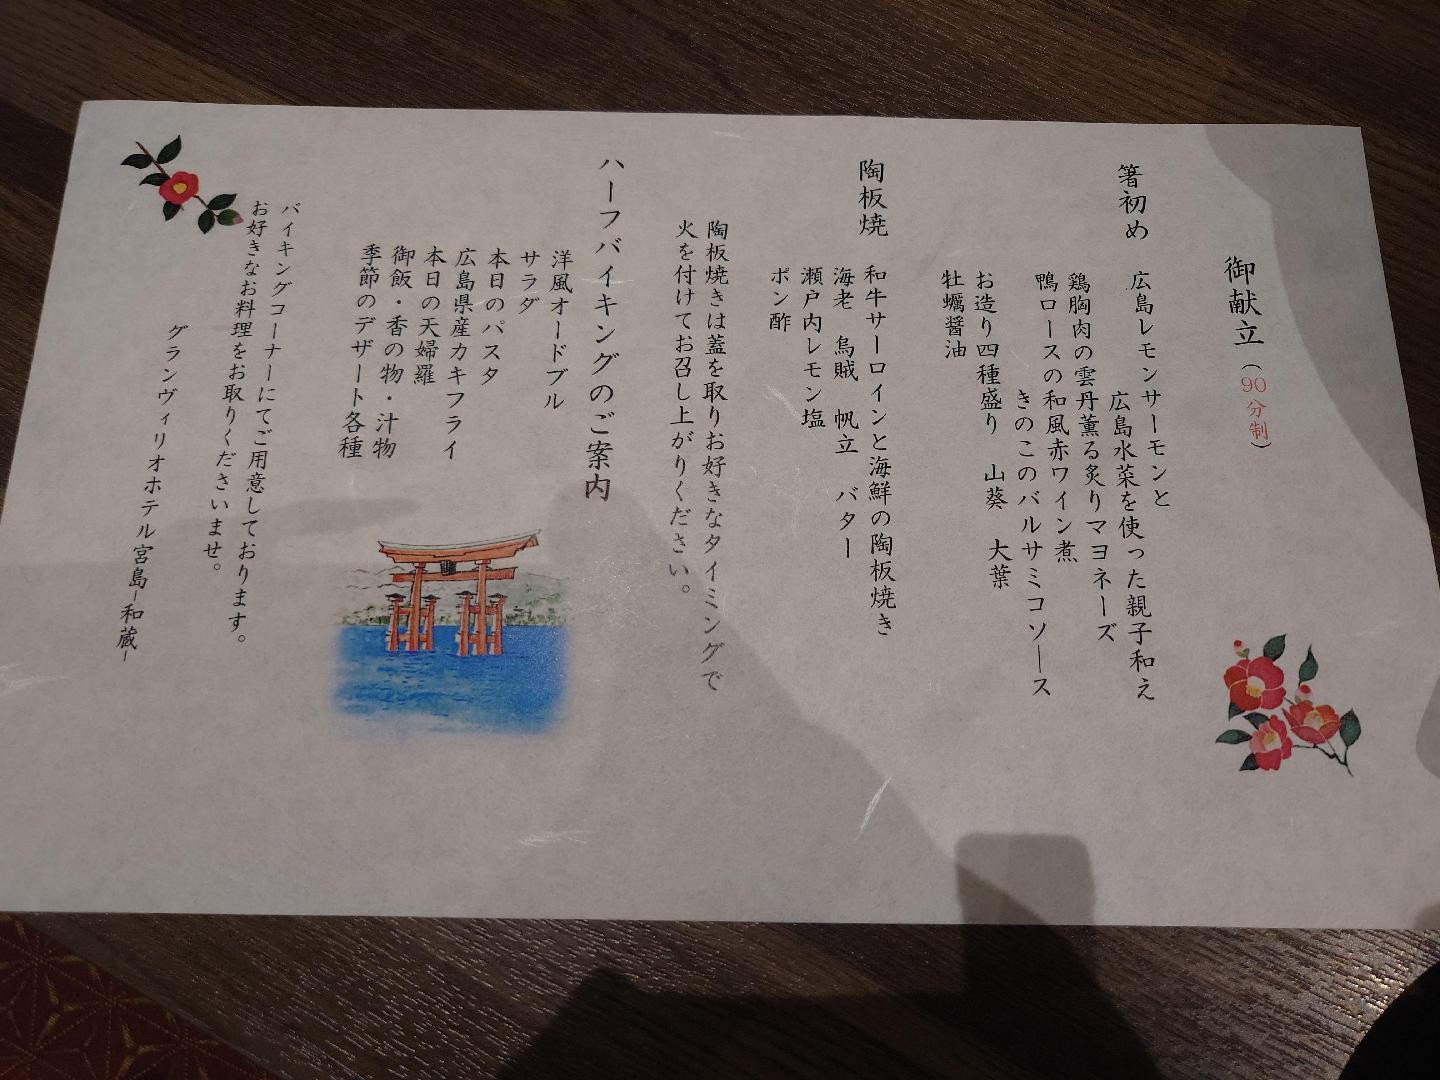 御献立（90分制）
箸初め
広島レモンサーモンと
広島水菜を使った親子和え
鶏胸肉の雲丹薫る炙りマヨネーズ
鴨ロースの和風赤ワイン煮
きのこのバルサミコソース
お造り四種盛り　山葵　大葉
牡蠣醤油
陶板焼
和牛サーロインと海鮮の陶板焼き
海老　烏賊　帆立　バター
瀬戸内レモン塩
ポン酢
陶板焼きは蓋を取りお好きなタイミングで
火を付けてお召し上がりください。
ハーフバイキングのご案内
洋風オードブル
サラダ
本日のパスタ
広島県産カキフライ
本日の天婦羅
御飯・香の物・汁物
季節のデザート各種
バイキングコーナーにてご用意しております。
お好きなお料理をお取りくださいませ。
グランヴィリオホテル宮島-和蔵-